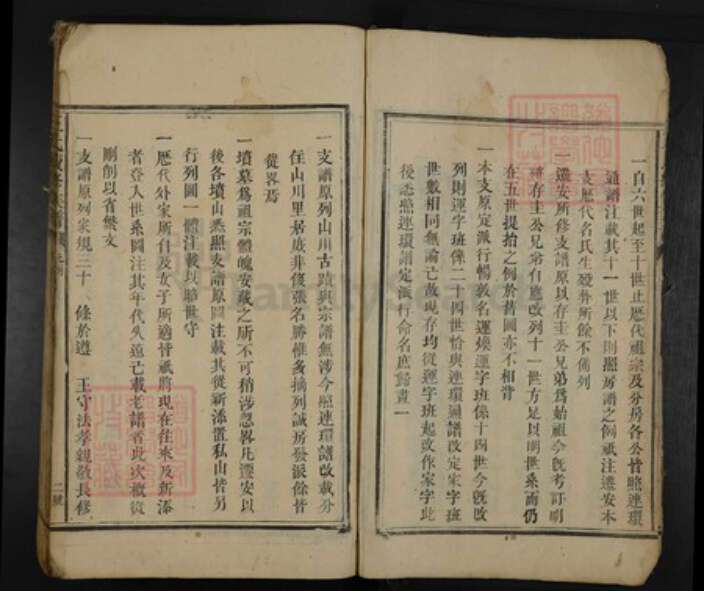 一自六世起至十世止歷代祖宗及分房各公皆照連環
通譜注載其十一世以下則照房譜之例祇注遷安本
支歷代名氏生歿葬所餘不備列
一遷安所修支譜原以存圭公兄弟為始祖今既考訂明
確存圭公兄弟自應改列十一世方足以明世系而仍
在五世提抬之例於舊圖亦不相背
一本支原定派行暢敦名運煥運字班係十四世今既改
列則運字班係二十四世恰與連環圖譜改定家字班
世數相同無論已故現存均從運字班起改作家字此
後悉照連環譜定派行命名庶歸畫一
一支譜原列山川古蹟與宗譜無涉今照連環譜改載分
住山川里居底非復張名勝惟多摘列誠房發派餘皆
從畧焉
一墳墓為祖宗體魄安藏之所不可稍涉忽畧凡遷安以
後各墳山悉照支譜原圖注載其從新添置私山皆另
行列圖一體注載以昭世守
一歷代外家所自及女子所適皆祇將現在往來及新添
者登入世系圖注其年代久遠已載老譜者此次概從
刪削以省繁文
一支譜原列家規三十一條於遵　王守法孝親敬長修
二號